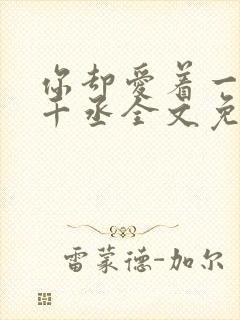 你却爱着一
十丞全文免
雷蒙德-加尔